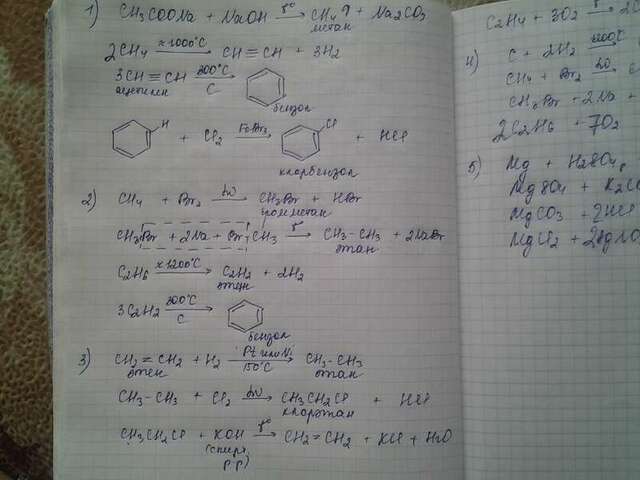 1) CH3COONa + NaOH —t°→ CH4↑ + Na2CO3
метан
2CH4 —≈1000°C→ CH≡CH + 3H2
3CH≡CH —300°C, C→
ацетилен
бензол
H + Cl2 —FeBr3→ Cl + HCl
хлорбензол
2) CH4 + Br2 —hν→ CH3Br + HBr
бромметан
CH3Br + 2Na + Br CH3 —t°→ CH3–CH3 + 2NaBr
этан
C2H6 —≈1200°C→ C2H2 + 2H2
этен
3C2H2 —300°C, C→
бензол
3) CH2=CH2 + H2 —Pt или Ni, 150°C→ CH3–CH3
этен этан
CH3–CH3 + Cl2 —hν→ CH3CH2Cl + HCl
хлорэтан
CH3CH2Cl + KOH —t°→ CH2=CH2 + KCl + H2O
(спирт.
р-р)
C2H4 + 3O2
4) C + 2H2
CH4 + Br2
CH3Br + 2Na +
2C2H6 + 7O2
5) Mg + H2SO4
MgSO4 + K2C
MgCO3 + 2HCl
MgCl2 + 2AgNO